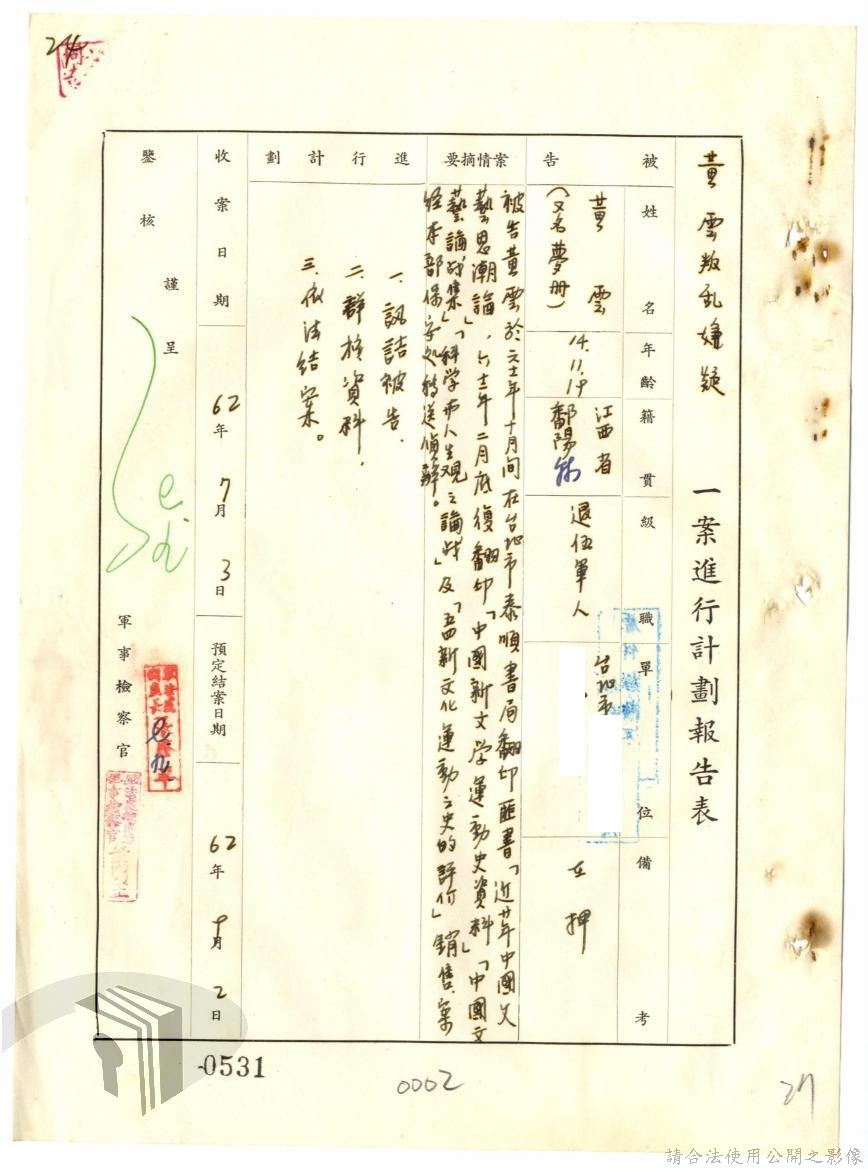 黃雲叛乱嫌疑 一案進行計劃報告表
被告
姓名
年齡
籍貫
級職
單位
備考
黃雲
(又名夢册)
14.11.19
江西省
鄱陽縣
退伍軍人
台北市
在押
案情摘要
被告黃雲於六十一年十月間在台北市泰順書局翻印匪書「近廿年中國文
藝思潮論」,六十二年二月底復翻印「中國新文学運動史資料」「中國文
藝論战集」「科学與人生观之論战」及「五四新文化運動之史的評价」銷售,案
經本部保安处移送偵辦。
進行計劃
一、訊詰被告、
二、詳核資料,
三、依法結案。
收案日期
62年7月3日
預定結案日期
62年9月2日
謹呈
鑒核
軍事檢察官
-0531
0002
27
24
請合法使用公開之影像